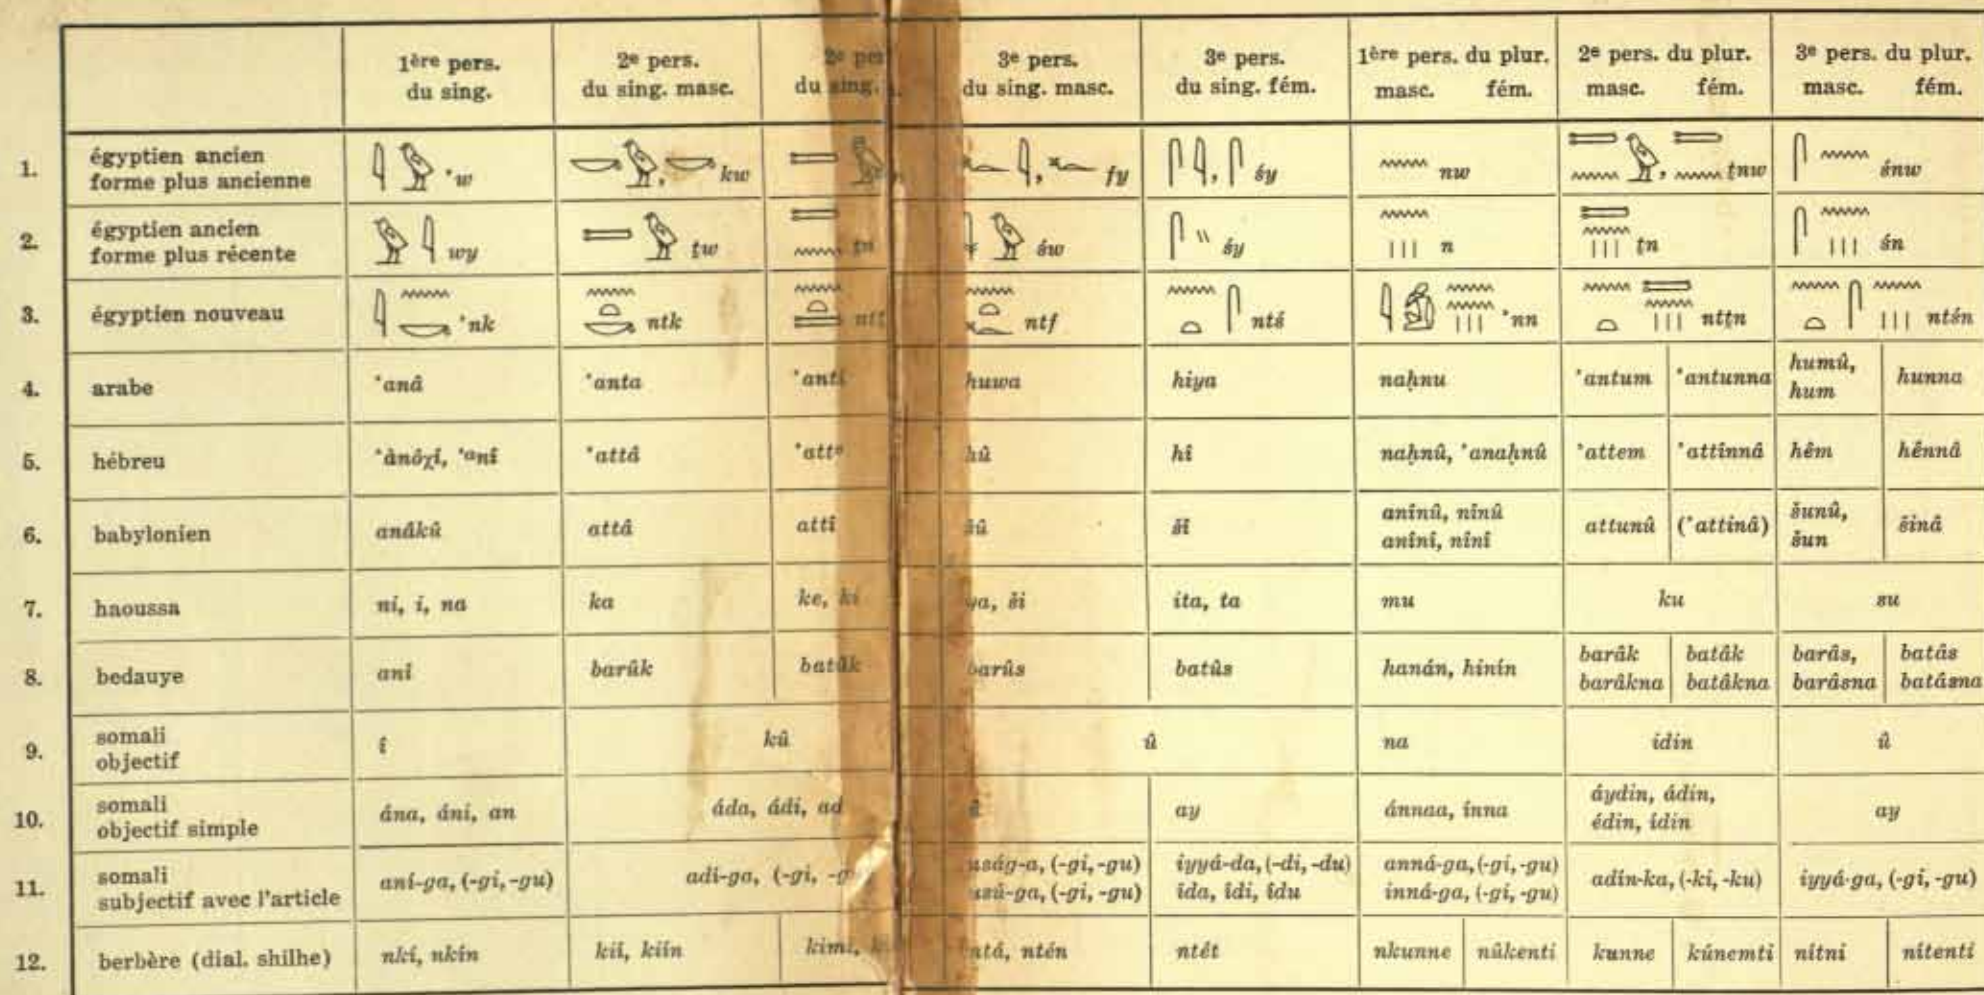 1ère pers. du sing.
2e pers. du sing. masc.
2e du sing.
3e pers. du sing. masc.
3e pers. du sing. fém.
1ère pers. du plur. masc. fém.
2e pers. du plur. masc. fém.
3e pers. du plur. masc. fém.
1. égyptien ancien forme plus ancienne ʼw kw fy śy nw ṯnw śnw
2. égyptien ancien forme plus récente wy ṯw ṯn św śy n ṯn śn
3. égyptien nouveau ʼnk ntk ntf ntś ʼnn ntṯn ntśn
4. arabe ʼanâ ʼanta ʼanti huwa hiya naḥnu ʼantum ʼantunna humû, hum hunna
5. hébreu ʼànôχí, ʼᵃnî ʼattâ hû hî naḥnû, ʼanaḥnû ʼattem ʼattînnâ hêm hênnâ
6. babylonien anâkû attâ attî šû šî anînû, nînû anînî, nînî attunû (ʼattinâ) šunû, šun šinâ
7. haoussa ni, i, na ka ke, ki ya, ši ita, ta mu ku su
8. bedauye ani barûk batûk barûs batûs hanán, hinín barâk barâkna batâk batâkna barâs, barâsna batâs batâsna
9. somali objectif î kû û na idin û
10. somali objectif simple ána, áni, an áda, ádi, ad ay ánnaa, ínna áydin, ádin, édin, ídin ay
11. somali subjectif avec l'article aní-ga, (-gi, -gu) adi-ga, (-gi, uság-a, (-gi, -gu) usú-ga, (-gi, -gu) iyyá-da, (-di, -du) îda, îdi, îdu anná-ga, (-gi, -gu) inná-ga, (-gi, -gu) adín-ka, (-ki, -ku) iyyá-ga, (-gi, -gu)
12. berbère (dial. shilhe) nkí, nkín kíí, kíín kimi, ntá, ntén ntét nkunne nûkenti kunne kúnemti nítni nítenti